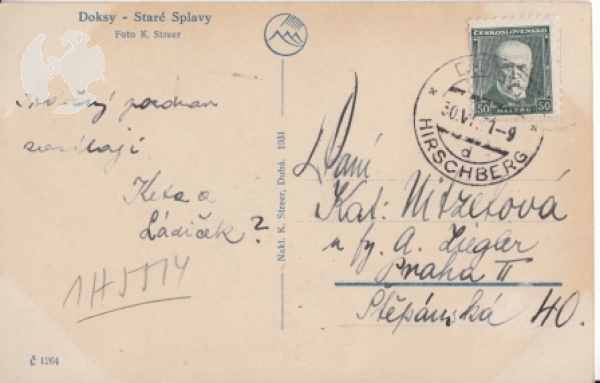 Doksy - Staré Splavy
Foto K. Streer
Srdečný pozdrav
zasílají
Keta a
Ládiček?
1H5514
Č 1264
Nakl. K. Streer, Dubá. 1931
ČESKOSLOVENSKO
50 HALÉŘŮ 50
HIRSCHBERG
d
Paní
Kat.
u fy. A. Ziegler
Praha II
Štěpánská 40.